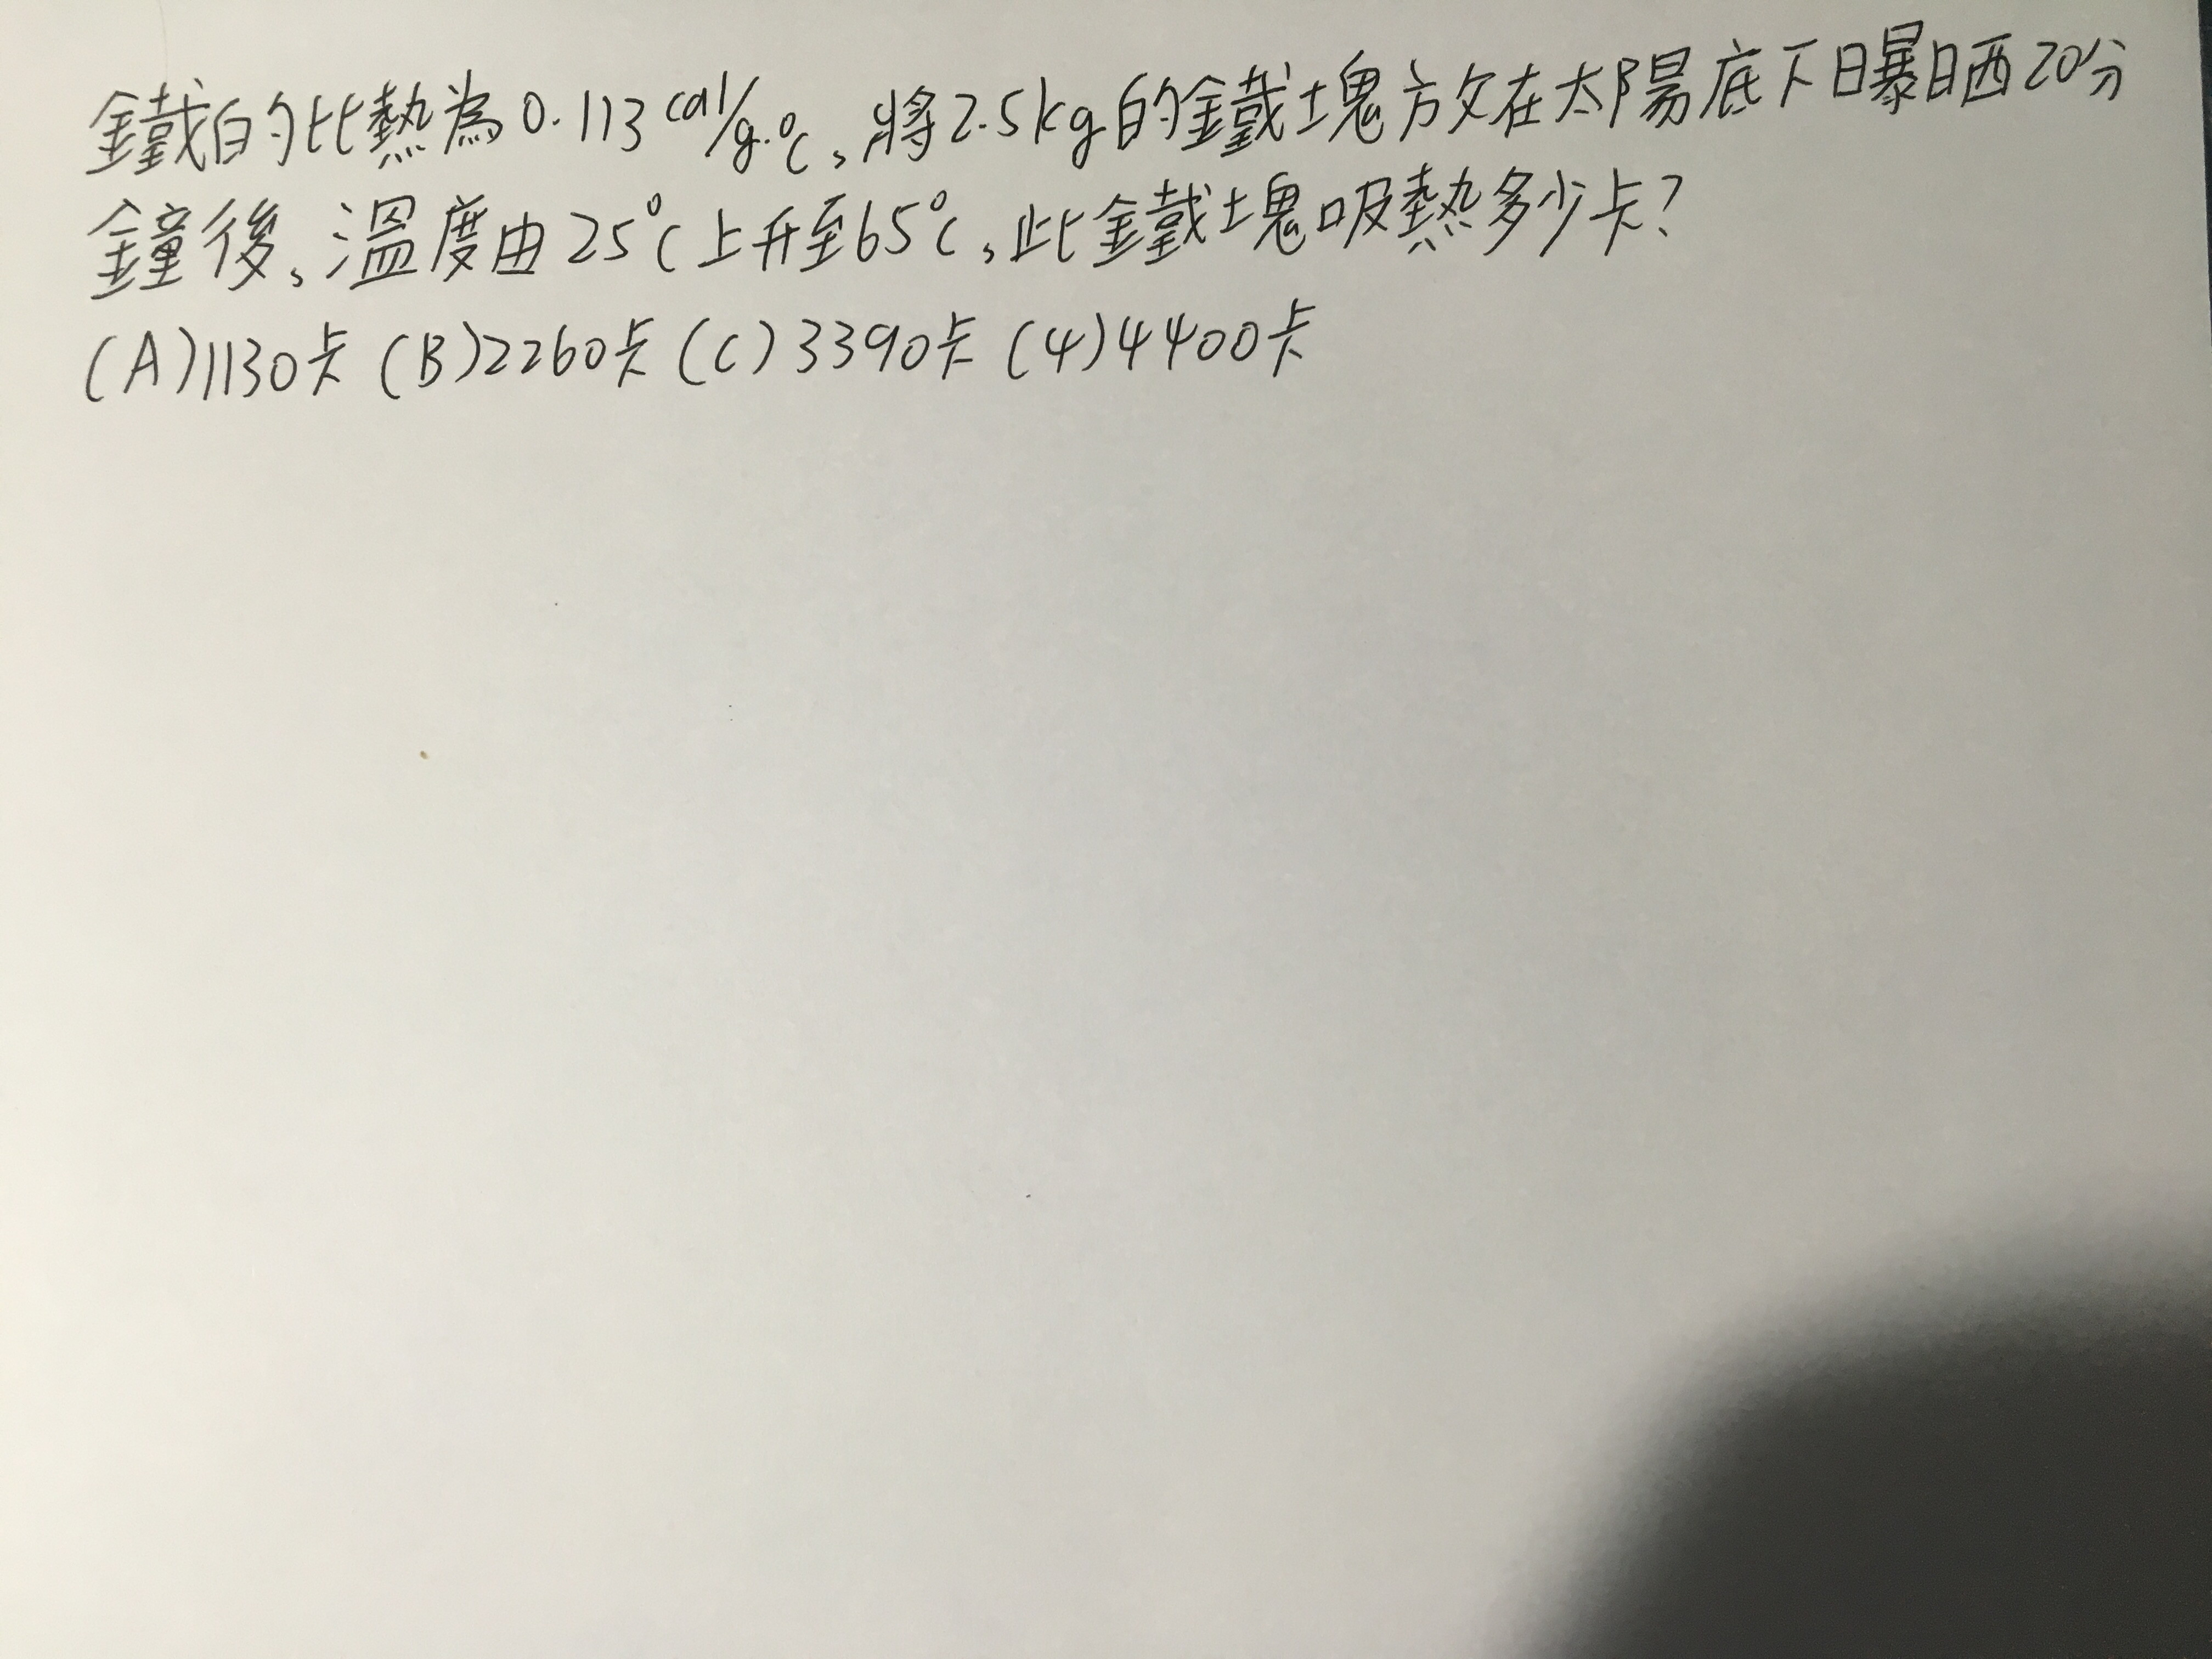 鐵的比熱為0.113 cal/g.℃,將2.5kg的鐵塊放在太陽底下曝晒20分
鐘後,溫度由25℃上升至65℃,此鐵塊吸熱多少卡?
(A)1130卡 (B)2260卡 (C)3390卡 (4)4400卡